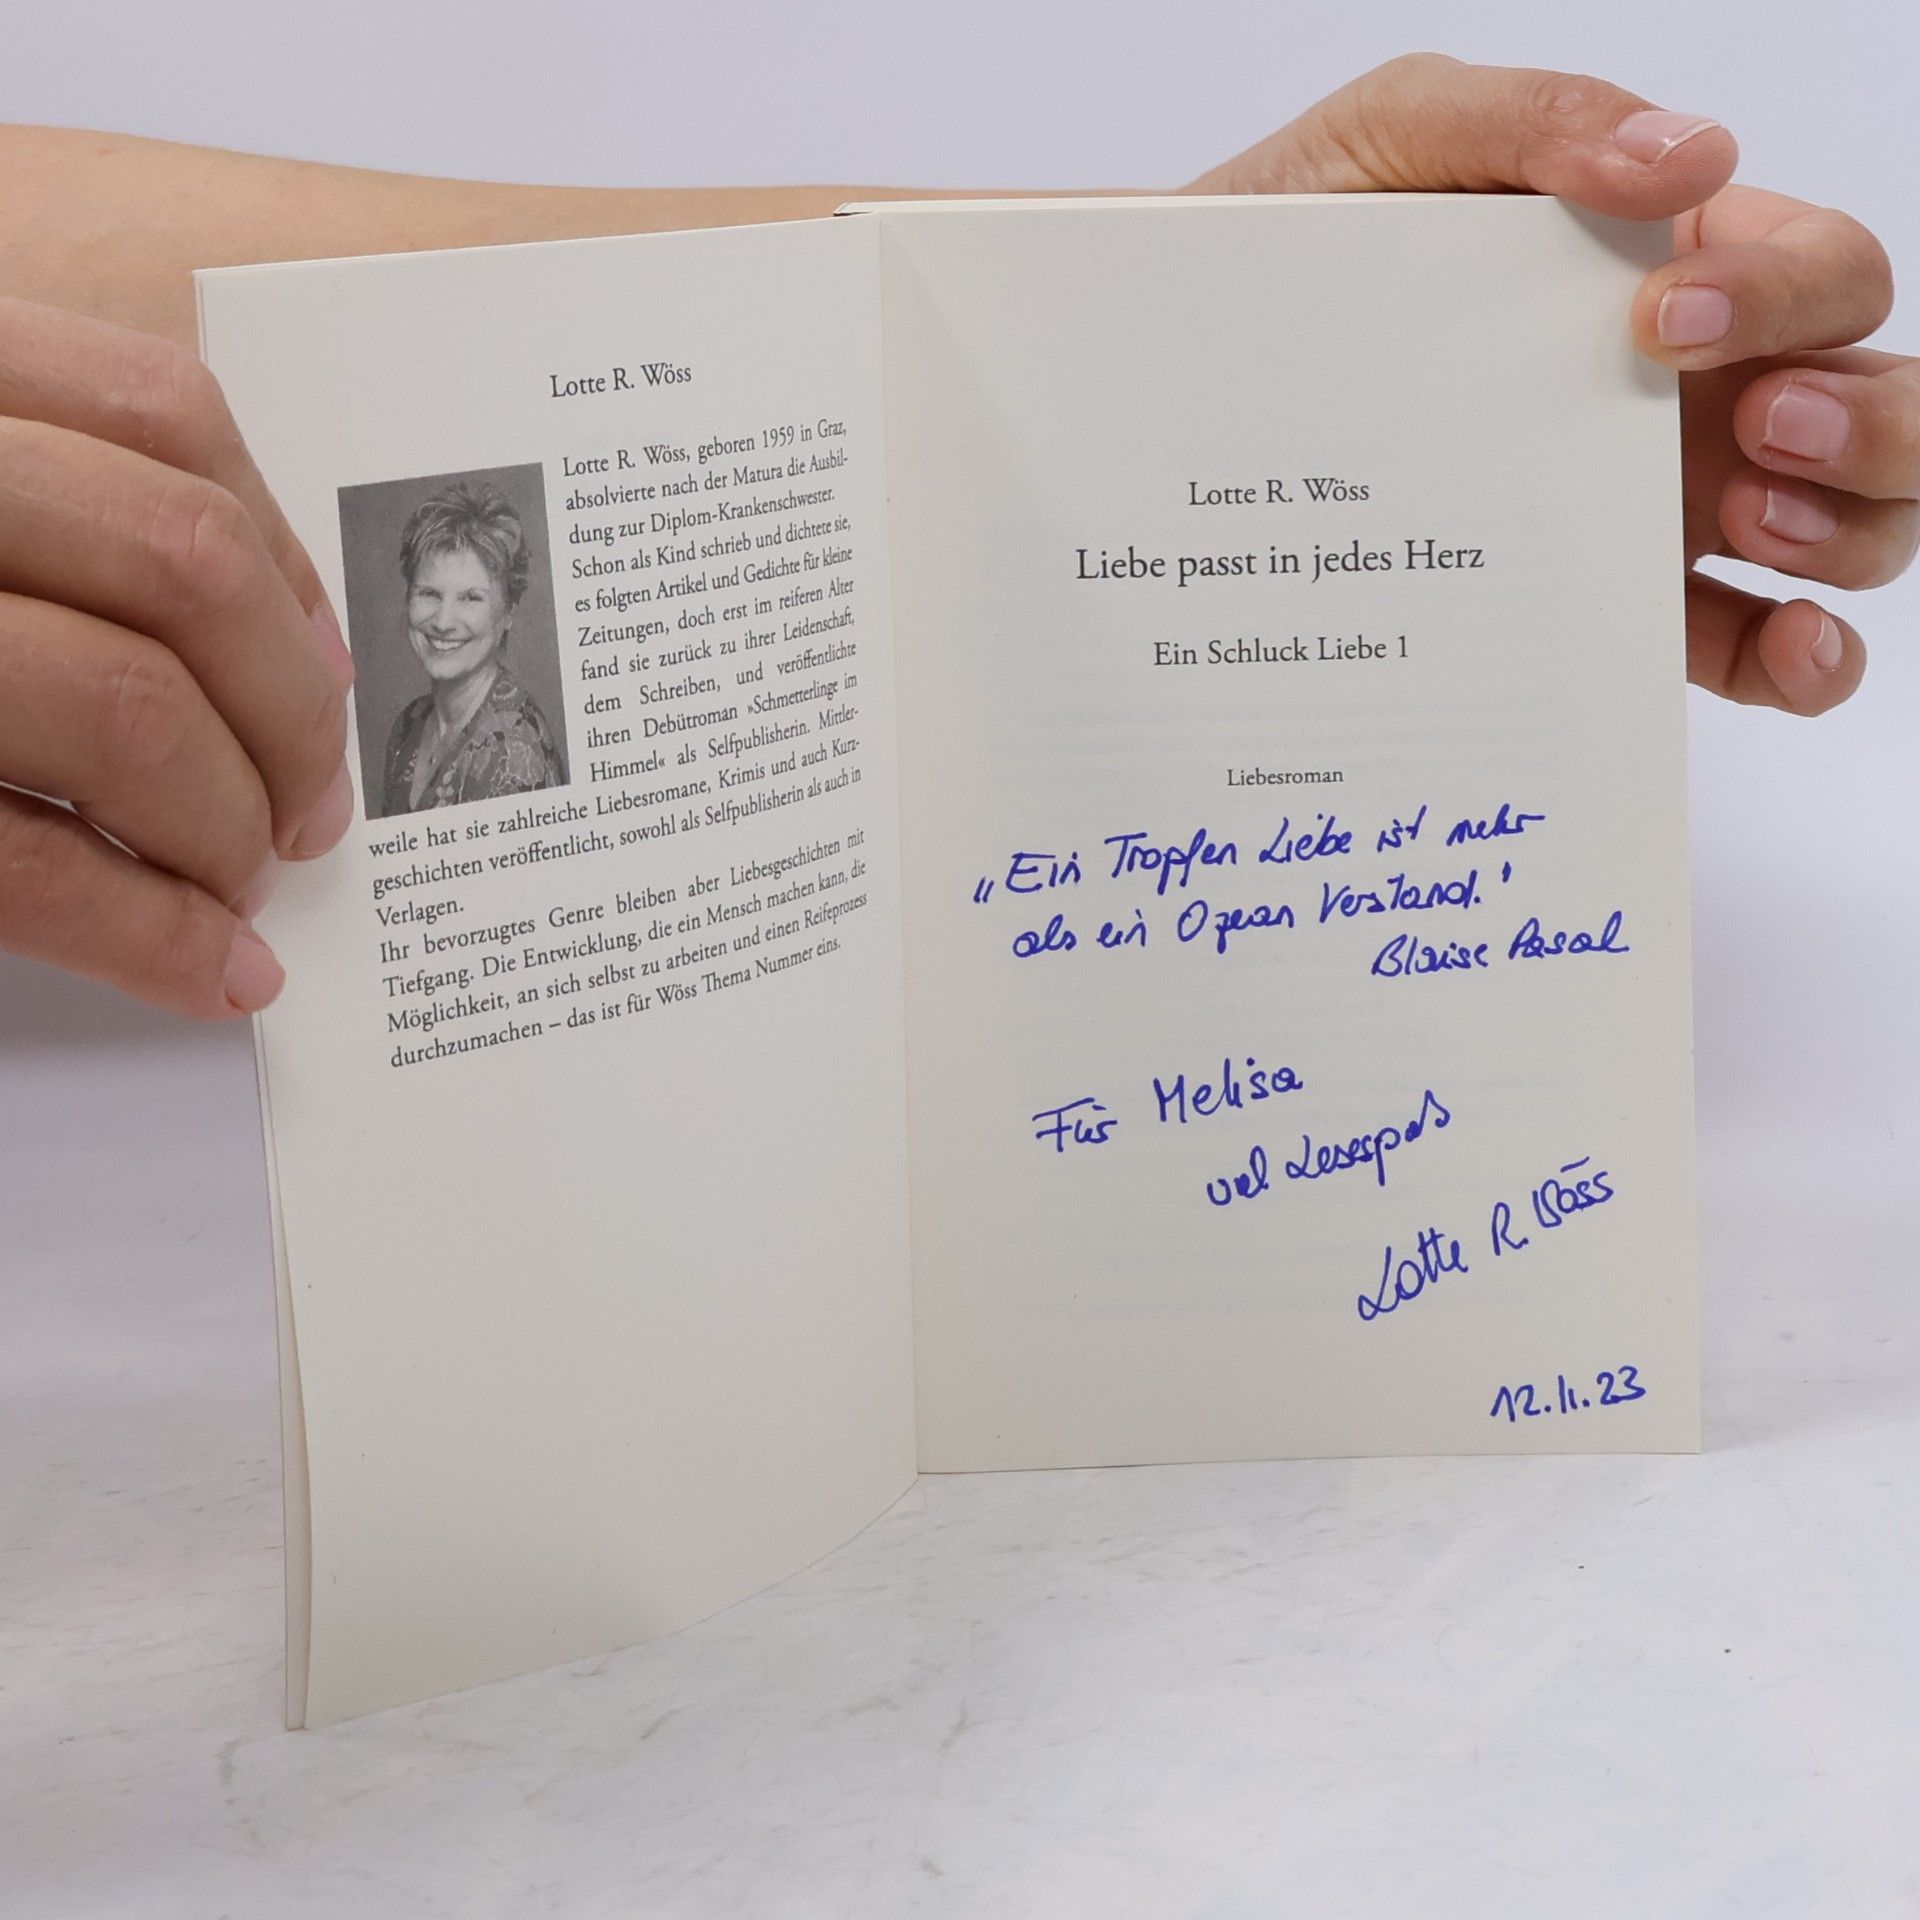 Lotte R. Wöss
Lotte R. Wöss, geboren 1959 in Graz,
absolvierte nach der Matura die Ausbil-
dung zur Diplom-Krankenschwester.
Schon als Kind schrieb und dichtete sie,
es folgten Artikel und Gedichte für kleine
Zeitungen, doch erst im reiferen Alter
fand sie zurück zu ihrer Leidenschaft,
dem Schreiben, und veröffentlichte
ihren Debütroman »Schmetterlinge im
Himmel« als Selfpublisherin. Mittler-
weile hat sie zahlreiche Liebesromane, Krimis und auch Kurz-
geschichten veröffentlicht, sowohl als Selfpublisherin als auch in
Verlagen.
Ihr bevorzugtes Genre bleiben aber Liebesgeschichten mit
Tiefgang. Die Entwicklung, die ein Mensch machen kann, die
Möglichkeit, an sich selbst zu arbeiten und einen Reifeprozess
durchzumachen – das ist für Wöss Thema Nummer eins.
Lotte R. Wöss
Liebe passt in jedes Herz
Ein Schluck Liebe 1
Liebesroman
„Ein Tropfen Liebe ist mehr
als ein Ozean Verstand."
Blaise Pascal
Für Melisa
viel Lesespaß
Lotte R. Wöss
12.11.23